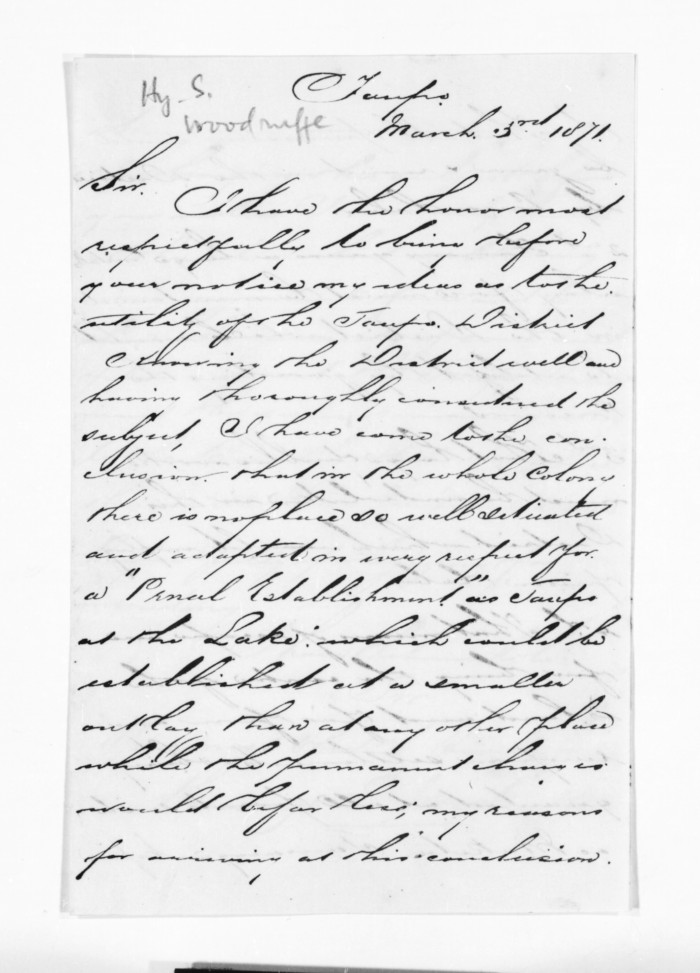 Hy. S.
Woodruffe
Taupo.
March. 3rd 1871.
Sir.
I have the honor most
respectfully to bring before
your notice my ideas as to the.
utility of the Taupo. District
Knowing the District well and
having thoroughly considered the
subject, I have come to the con-
clusion. that in the whole Colony
there is no place so well situated
and adapted in every respect for.
a "Penal Establishment" as Taupo
at the Lake: which could be
established at a smaller
outlay than at any other place
while the permanent charges
would be far less; my reasons
for arriving at this conclusion.